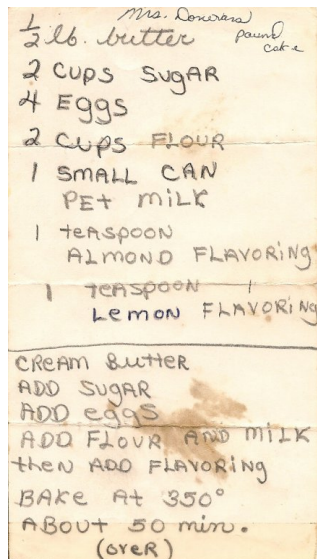 Mrs. Donovans
pound
cake
½ lb. butter
2 CUPS SUGAR
4 EGGS
2 CUPS FLOUR
1 SMALL CAN
PET MILK
1 teASPOON
ALMOND FLAVORING
1 teASPOON
LEMON FLAVORING
CREAM BUTTER
ADD SUGAR
ADD eggs
ADD FLOUR AND MILK
then ADD FLAVORING
BAKE At 350°
ABOUT 50 min.
(oveR)